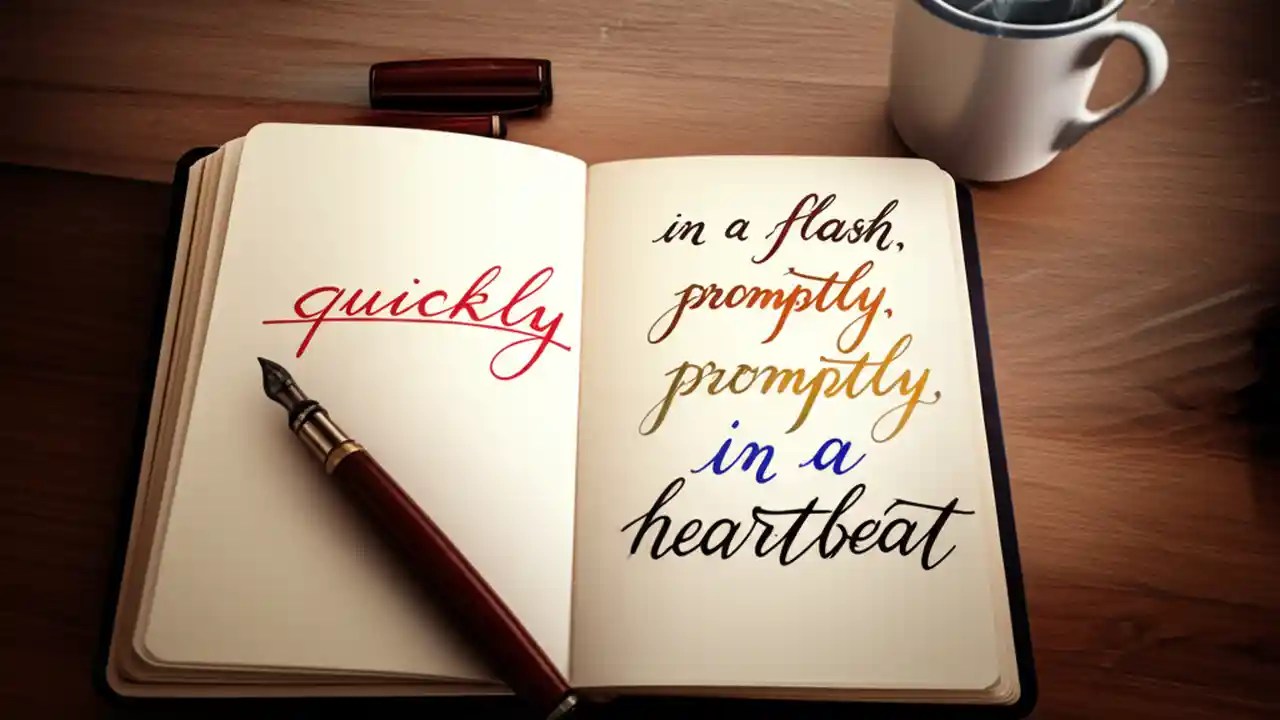 quickly
in a flash,
promptly,
promptly,
in a
heartbeat